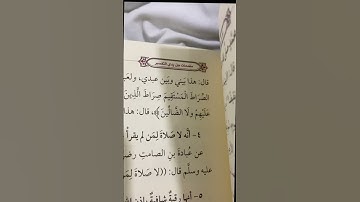 مقدمات بين يدي التفسير
قال: هذا بيني وبين عبدي، ولعبـ
الصِّرَاطَ الْمُسْتَقِيمَ صِرَاطَ الَّذِينَ
عَلَيْهِمْ وَلَا الضَّالِّينَ﴾، قال: هذا
٤- أنَّه لا صَلاةَ لِمَن لم يقرأ
عن عُبادةَ بنِ الصَّامتِ رضي
عليه وسلَّم قال: ((لا صَلاةَ لِمَن
٥- أنها رقيةٌ شافيةٌ بإذن الله